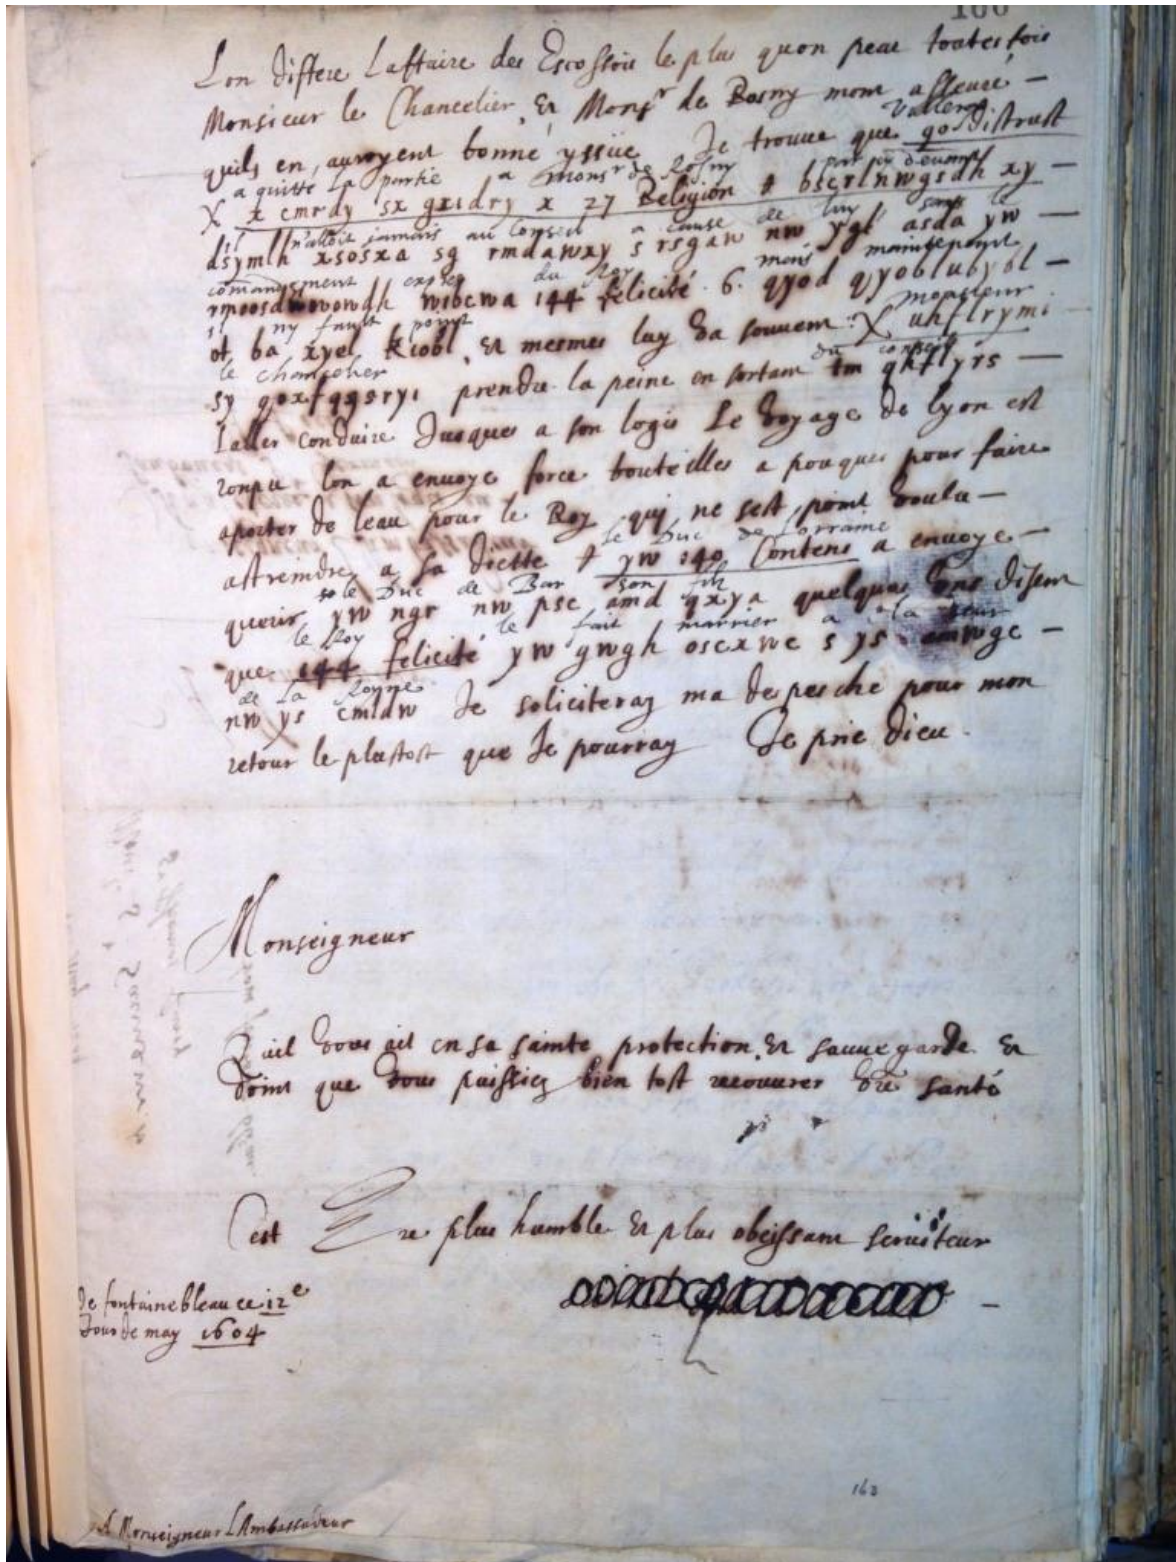 Lon differe Laffaire des Escossois le plus quon peut toutesfois
Monsieur le Chancelier, Et Monsr de Rosny mont asseuré —
quils en auroyent bonne yssue Je trouue que go distrust
a quitté la partie a Monsr de Rosny par cy deuant
X x cmrdy sx gxidry x 27 Religion + bscrlnwgsdh xy —
il n'alloit jamais au conseil a cause de luy sans le
dsymlh xsosxa sg rmdawxy s rsgaw nw ygl asda yw —
commandement expres du Roy mais maintenant
wibcwa 144 felicité. 6. qyod qyoblubybl —
il ny fault point monsieur
ot ba xyel kiobl, Et mesmes luy Va souuent X uhflrymi
le chancelier du conseil
sy gox prendre la peine en sortant tm qhflyrs —
Laller conduire Jusques a son logis Le Voyage de Lyon est
ronpu lon a enuoyé force bouteilles a pougues pour faire
aporter de leau pour le Roy quj ne sest point voulu —
astreindre a sa diette le Duc de Lorraine
+ yw 140 Contens a enuoyé —
le Duc de Bar son filz
querir yw ngr nw psc amd qxya quelques Vns disent
le Roy le fait marrier a la seur
que 144 felicité yw gwgh oscxwc s ys amwgc —
de la Royne
nw ys cmldw Je soliciteray ma depesche pour mon
retour le plustost que Je pourray Je prie dieu
Monseigneur
Quil Vous ait en sa sainte protection, Et sauuegarde Et
doint que Vous puissiez bien tost recouurer Vre santé
Cest Vre plus humble Et plus obeissant seruiteur
De fontainebleau ce 12e
Jour de may 1604
163
A Monseigneur LAmbassadeur